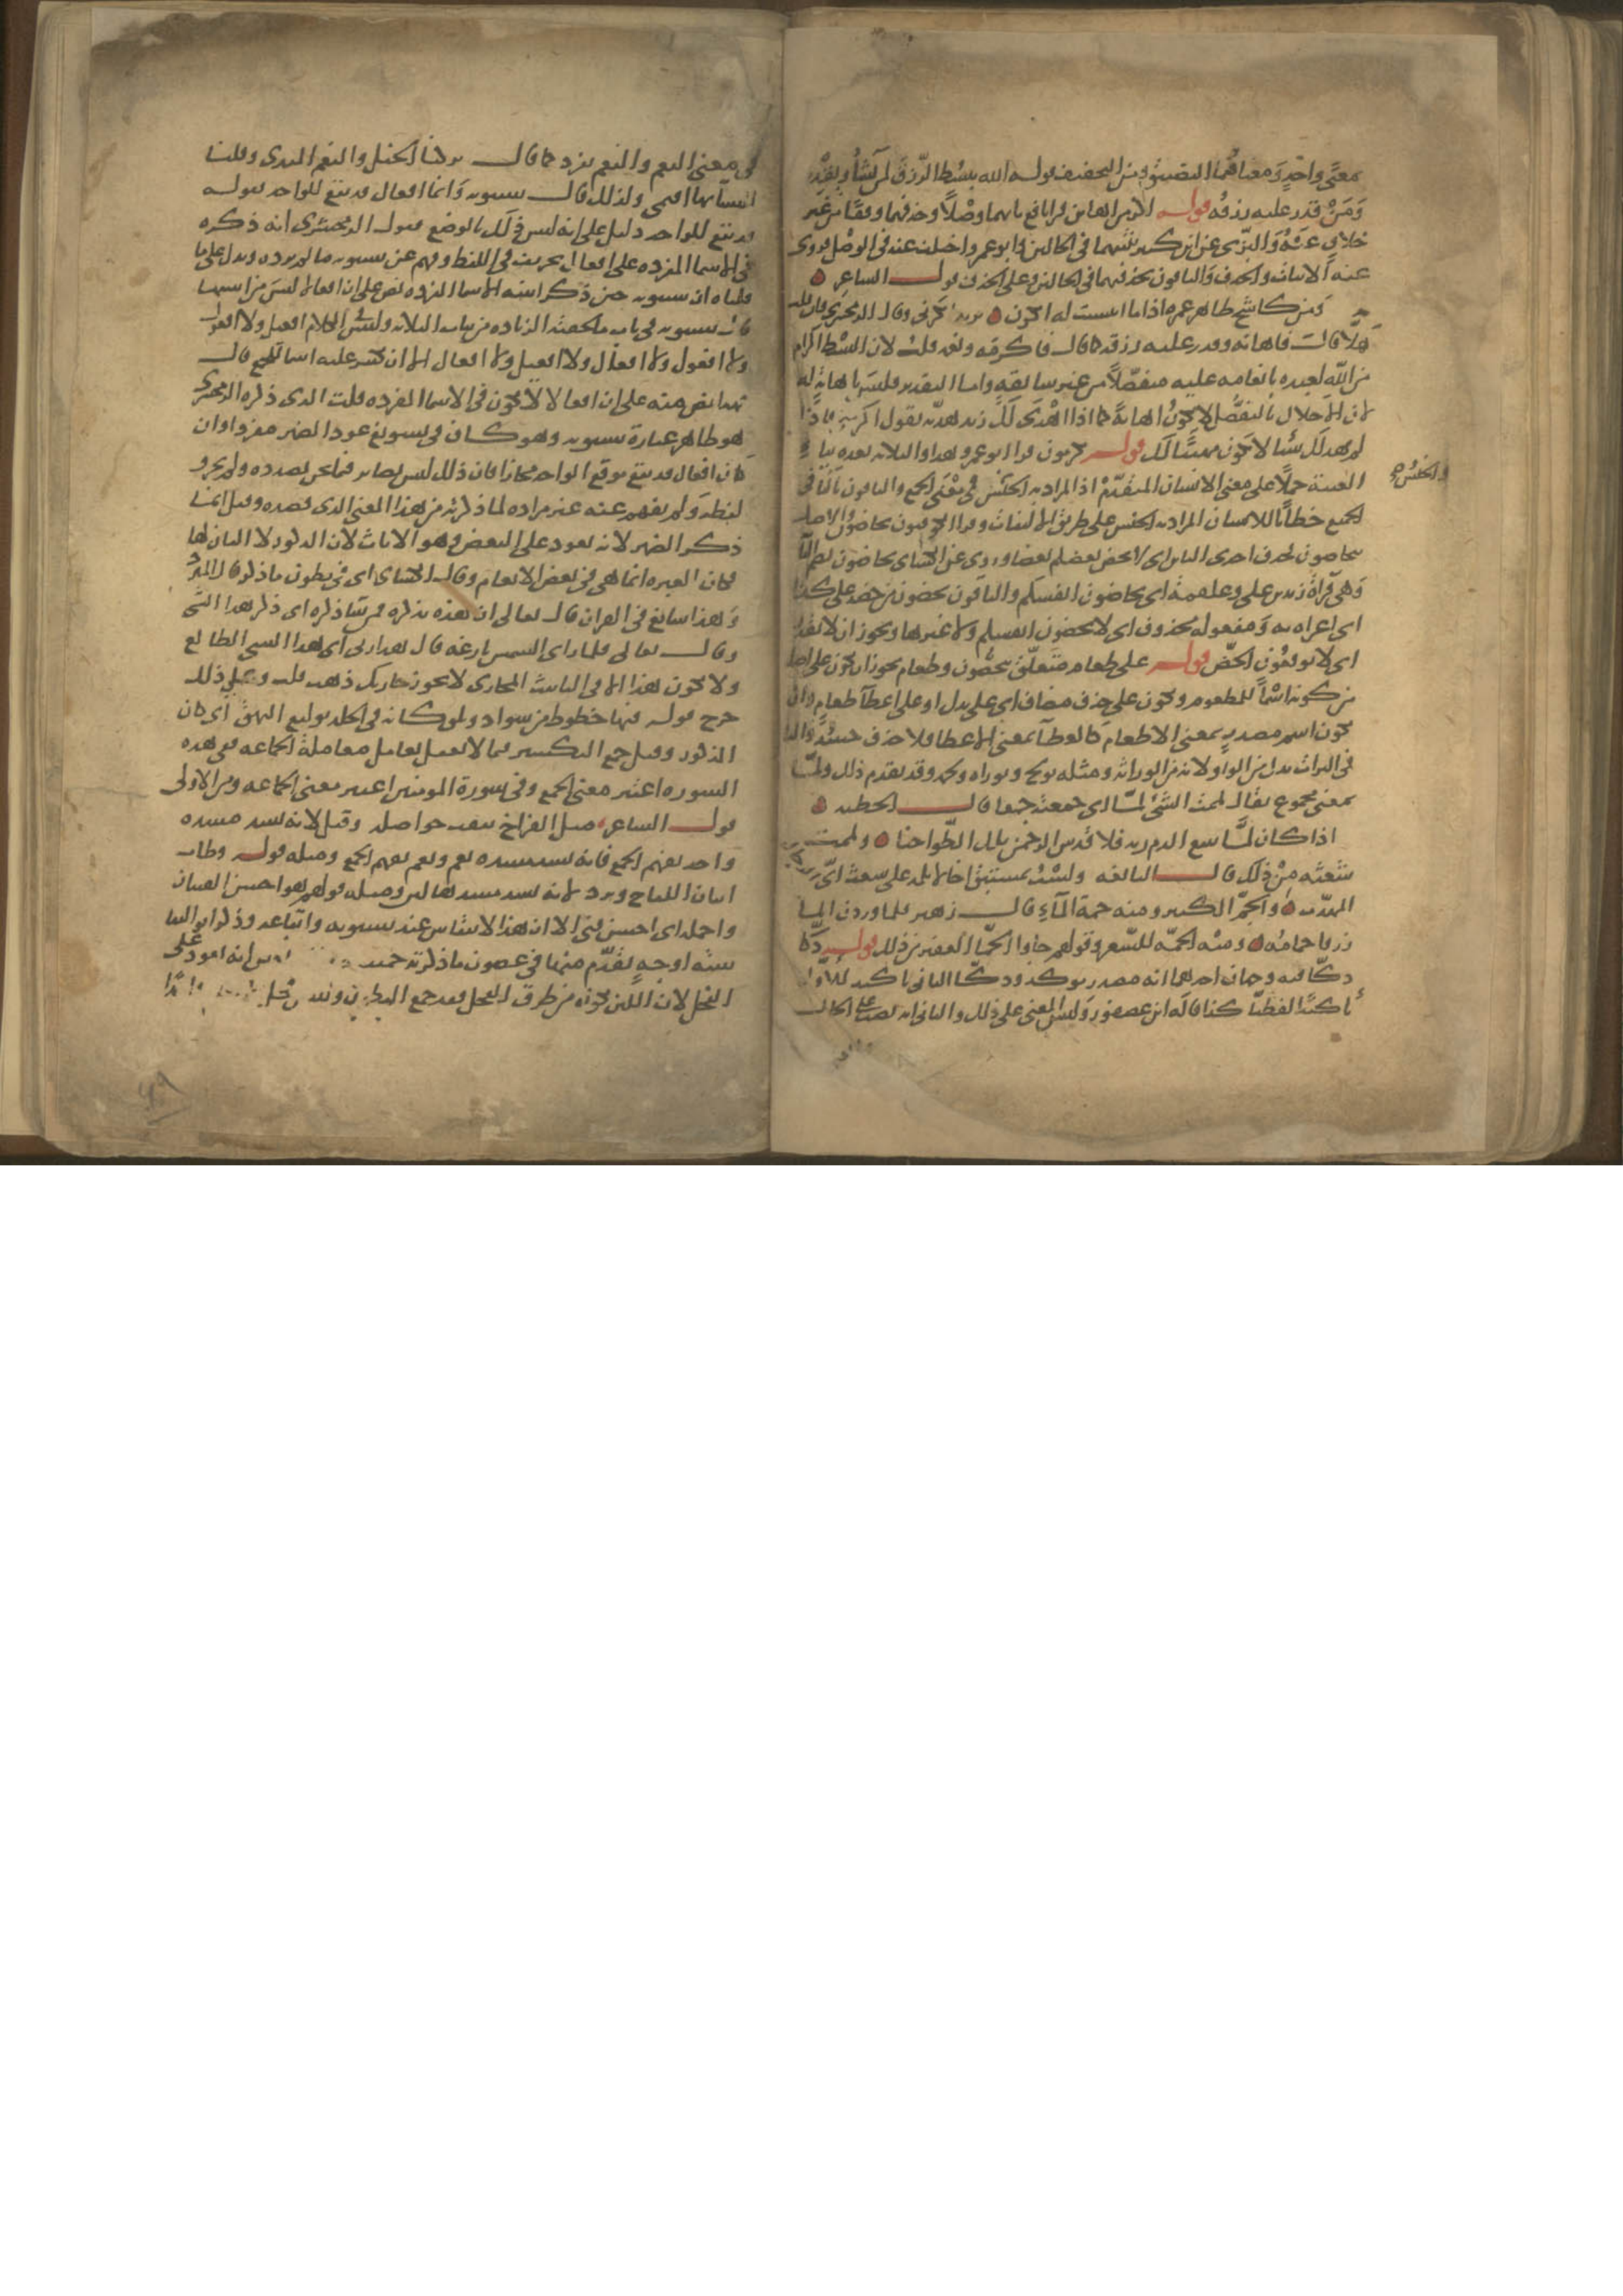 معنًى واحدٍ ومعناهما التضييق ومن التخفيف قوله الله يبسط الرزق لمن يشاء ويقدر
وَمَنْ قدر عليه رزقه قوله اكرمن اهانن قرا نافع باثباتهما وصْلًا وحذفهما وقفًا من غير
خلافٍ عَنْهُ وَالبزّي عن ابن كثير يثبتهما في الحالين وابو عمرو اختلف عنه في الوصْل فروي
عنه الاثبات والحذف وَالباقون يحذفهما في الحالين وعلى الحذف قولــ الشاعر
ومن كاشح ظاهر غمره اذا ما انتسبت له انكرن يريد انكرني وقال الزمخشري فان قلت
هَلّا قال فاهانه وقدر عليه رزقه كما قال فاكرمه ونعمه قلت لان البسْط اكرام
من اللّه لعبده بانعامه عليه متفضّلًا من غير سابقه واما التقدير فليس باهانة له
لان الاخلال بالتفضّل لا يكونُ اهانةً كما اذا اهْدَى لَكَ زيد هديّه تقول اكرمني فاذا
لم يهد لَكَ شيا لا يكون مهينًا لَكَ قولــه تكرمون قرا ابو عمرو هذا والثلاثه بعده بياء
الغيبة حملًا على معنى الانسان المتقدّم اذ المراد به الجنْس في معْنَى الجمع والباقون بالتا في
والجنْس
الجميع خطابًا للانسان المراد به الجنس على طريق الالتفات وقرا الكوفيون تحاضون والاصل
تتحاضون فحذف احدى التاين اى لا يحض بعضكم بعضا وروي عن الكساى تحاضون بضم التا
وَهى قرآة زيد بن علي وعلقمة اى تحاضون انفسكم والباقون تحضون من حضه على كذا
اى اغراه به وَمفعوله محذوف اى لا تحضون انفسكم ولا غيرها ويجوز ان لا يقدر
اى لا توقعون الحضّ قولــه على طعام متعلّق بتحضّون وطعام يجوز ان يكون على اصله
من كونه اسْمًا للمطعوم ويكون على حذف مضاف اى على بذل او على اعطآ طعامٍ وان
يكون اسم مصدرٍ بمعنى الاطعام كالعطآ بمعنى الاعطا فلا حذف حينئذٍ والتا
في التراث بدل من الواو لانه من الوراثه ومثله تولج وتوراه وتخمه وقد تقدم ذلك ولمّا
بمعنى مجموع يقال لممت الشئ لمًّا اى جمعته جمعا قالــ الحطيه
اذا كان لمًّا يتبع الذم ربه فلا قدس الرحمن تلك الطواحنا ولممت
شَعَثه مِنْ ذلك قالــ النابغه ولسْتَ بمستبق اخا لا تلمه على شعث اىّ الرجال
المهذّب والجمّ الكثير ومنه جمة المآءِ قالــ زهير فلما وردن الما
زرقا جمامُه ومنْه الجمّه للشعر وقولهم جاوا الجمّا الغفير من ذلك قولــه دكّا
دكّا فيه وجهان احدهما انه مصدر موكد ودكّا الثاني تاكيد للاول
تاكيدًا لفظيّا كذا قاله ابن عصفور وَليس المعنى على ذلك والثاني انه نصب على الحال
في معنى النعم والنعم يزد كما قالــ تركنا الخيل والنعم المفدى وقلنا
للنسآ بها اقيمى ولذلك قالــ سيبويه وَاما افعال فقد يقع للواحد فقوله
قد يقع للواحد دليل على انه ليس ذلك بالوضع فقول الزمخشرى انه ذكره
فى الاسما المفرده على افعال تحريف في اللفظ وفهم عن سيبويه ما لم يرده ويدل على ما
قلناه ان سيبويه حين ذكر ابنيه الاسما المفرده نص على ان افعالا ليس من ابنيتها
قال سيبويه في باب ما لحقته الزياده من بنات الثلاثه وليس في الكلام افعيل ولا افعول
ولا افعول ولا افعال ولا افعيل ولا افعال الا ان تكسر عليه اسما للجمع قالــ
فهذا نص منه على ان افعالا لا يكون في الاسما المفرده قلت الذى ذكره الزمخشري
هو ظاهر عبارة سيبويه وهو كــاف في تسويغ عود الضمير مفردا وان
كان افعال قد يقع موقع الواحد مجازا فان ذلك ليس بضاير فيما نحن بصدده ولم يحرف
لفظه وَلم يفهم عنه غير مراده لما ذكرته من هذا المعنى الذى قصده وقيل انما
ذكر الضمير لانه يعود على البعض وهو الاناث لان الذكور لا البان لها
فكان العبره انما هى في بعض الانعام وقال الكساى اى في بطون ما ذكر قال المبرد
وَهذا سائغ في القران قال تعالى ان هذه تذكره فمن شا ذكره اى ذكر هذا الشى
وقالــ تعالى فلما راى الشمس بازغه قال هذا ربى اى هذا الشى الطالع
ولا يكون هذا الا في التانيث المجازى لا يجوز جاريتك ذهب قلت وعلى ذلك
خرج قوله فيها خطوط من سواد وبلق كانه في الجلد توليع البهق اى كان
المذكور وقيل جمع التكسير فيما لا يعقل يعامل معاملة الجماعه ففي هذه
السوره اعتبر معنى الجمع وفى سورة المومنين اعتبر معنى الجماعه ومن الاولى
قولــ الشاعر مثل الفراخ نتفت حواصله وقيل لانه يسد مسده
واحد يفهم الجمع فانه يسد مسده نعم ونعم يفهم الجمع ومثله قولــه وطاب
البان اللقاح وبرد لانه يسد مسدها لبن ومثله قولهم هو احسن الفتيان
واجمله اى احسن فتى الا ان هذا لا ينقاس عند سيبويه واتباعه وذكر ابو البقا
ستة اوجهٍ تقدّم منها في غضون ما ذكرته خمسه والسادس انه يعود على
الفحل لان اللبن يكون من طرق الفحل